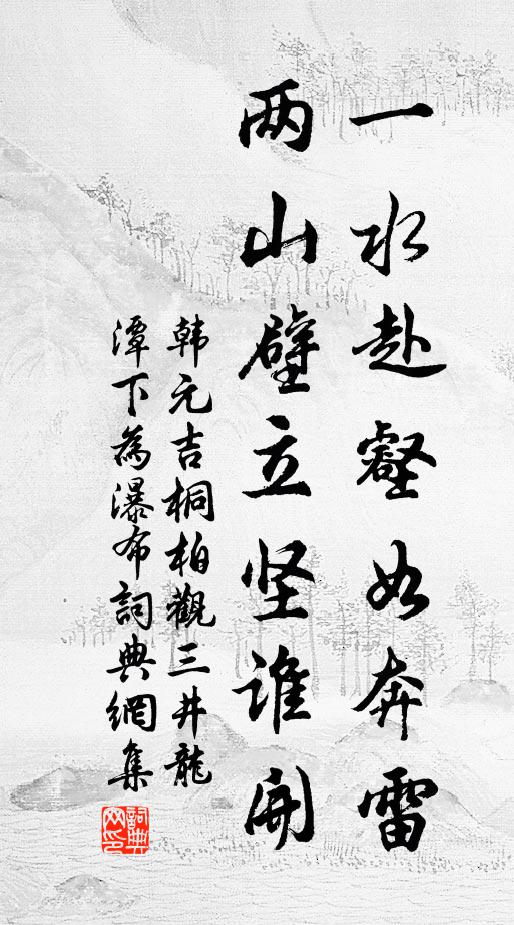 一水赴壑如奔雷
两山壁立坚谁开
韩元吉桐柏觀三井龍
潭下為瀑布詞典網集
詞典
网印